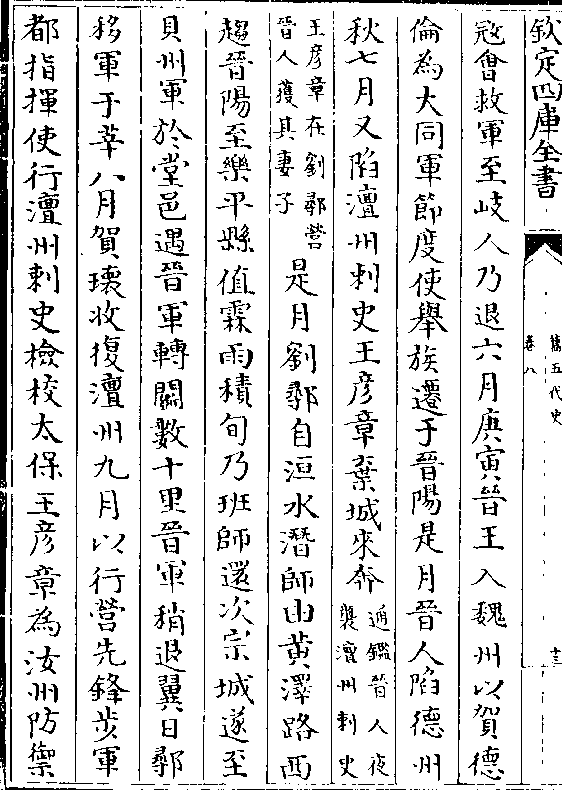 欽定四庫全書
舊五代史
卷八
十三
冦會救軍至岐人乃退六月庚寅晉王入魏州以賀德
倫為大同軍節度使舉族遷于晉陽是月晉人陷德州
秋七月又陷澶州刺史王彦章棄城來奔通鑑晉人夜襲澶州刺史
王彦章在劉鄩營晉人獲其妻子是月劉鄩自洹水潛師由黄澤路西
趨晉陽至樂平縣值霖雨積旬乃班師還次宗城遂至
貝州軍於堂邑遇晉軍轉鬭數十里晉軍稍退翼日鄩
移軍于莘八月賀瓌收復澶州九月以行營先鋒步軍
都指揮使行澶州刺史檢校太保王彦章為汝州防禦